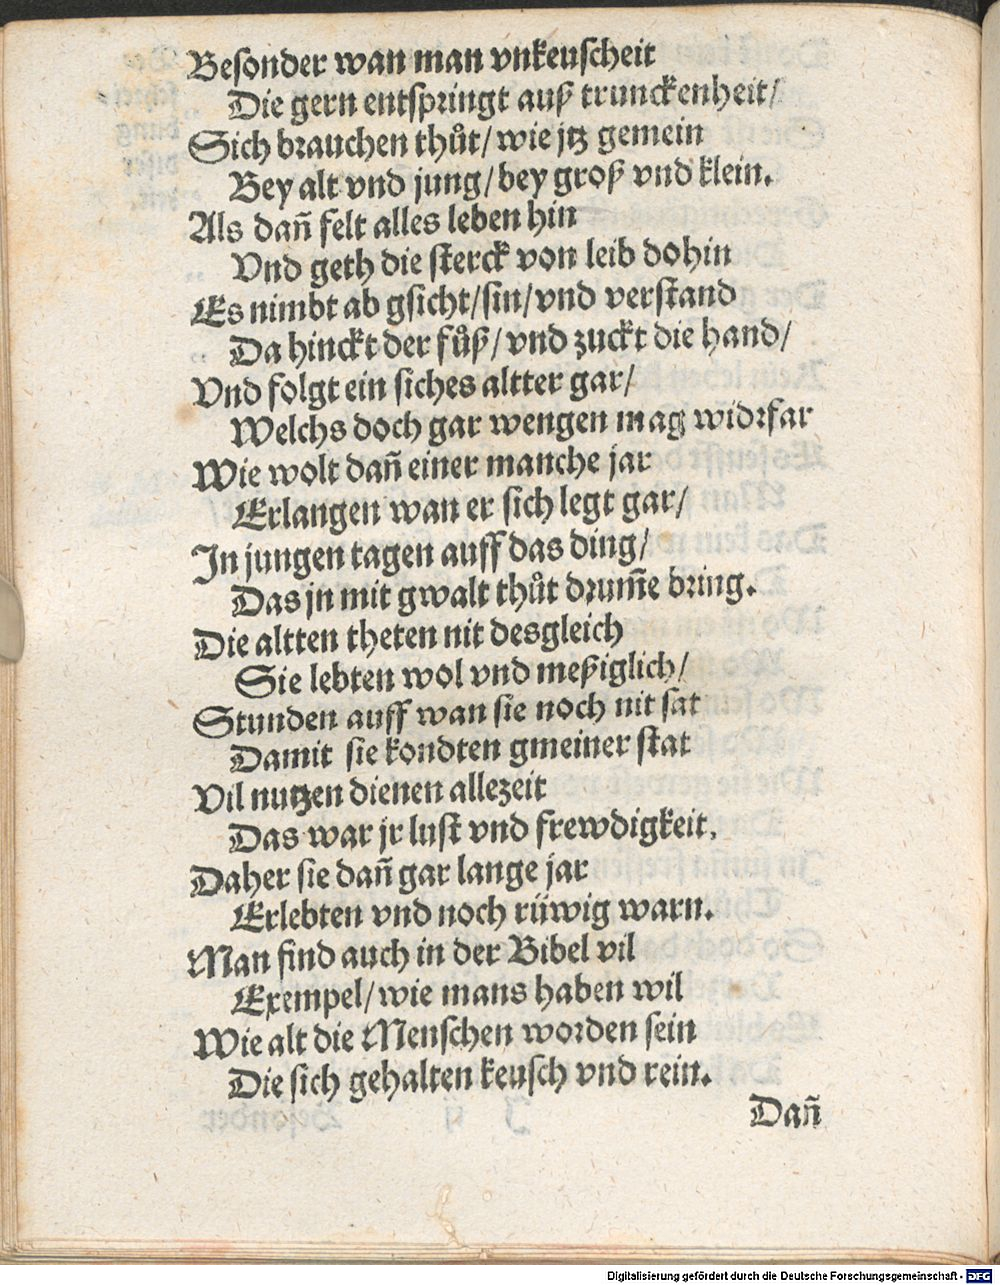 Besonder wan man vnkeuscheit
Die gern entspringt auß trunckenheit/
Sich brauchen thůt/ wie jtz gemein
Bey alt vnd jung/ bey groß vnd klein.
Als dañ felt alles leben hin
Vnd geth die sterck von leib dohin
Es nimbt ab gsicht/ sin/ vnd verstand
Da hinckt der fůß/ vnd zuckt die hand/
Vnd folgt ein siches altter gar/
Welchs doch gar wengen mag widrfar
Wie wolt dañ einer manche jar
Erlangen wan er sich legt gar/
In jungen tagen auff das ding/
Das jn mit gwalt thůt drum̃e bring.
Die altten theten nit desgleich
Sie lebten wol vnd meßiglich/
Stunden auff wan sie noch nit sat
Damit sie kondten gmeiner stat
Vil nutzen dienen allezeit
Das war jr lust vnd frewdigkeit.
Daher sie dañ gar lange jar
Erlebten vnd noch rüwig warn.
Man find auch in der Bibel vil
Exempel/ wie mans haben wil
Wie alt die Menschen worden sein
Die sich gehalten keusch vnd rein.
Dañ
Digitalisierung gefördert durch die Deutsche Forschungsgemeinschaft - DFG